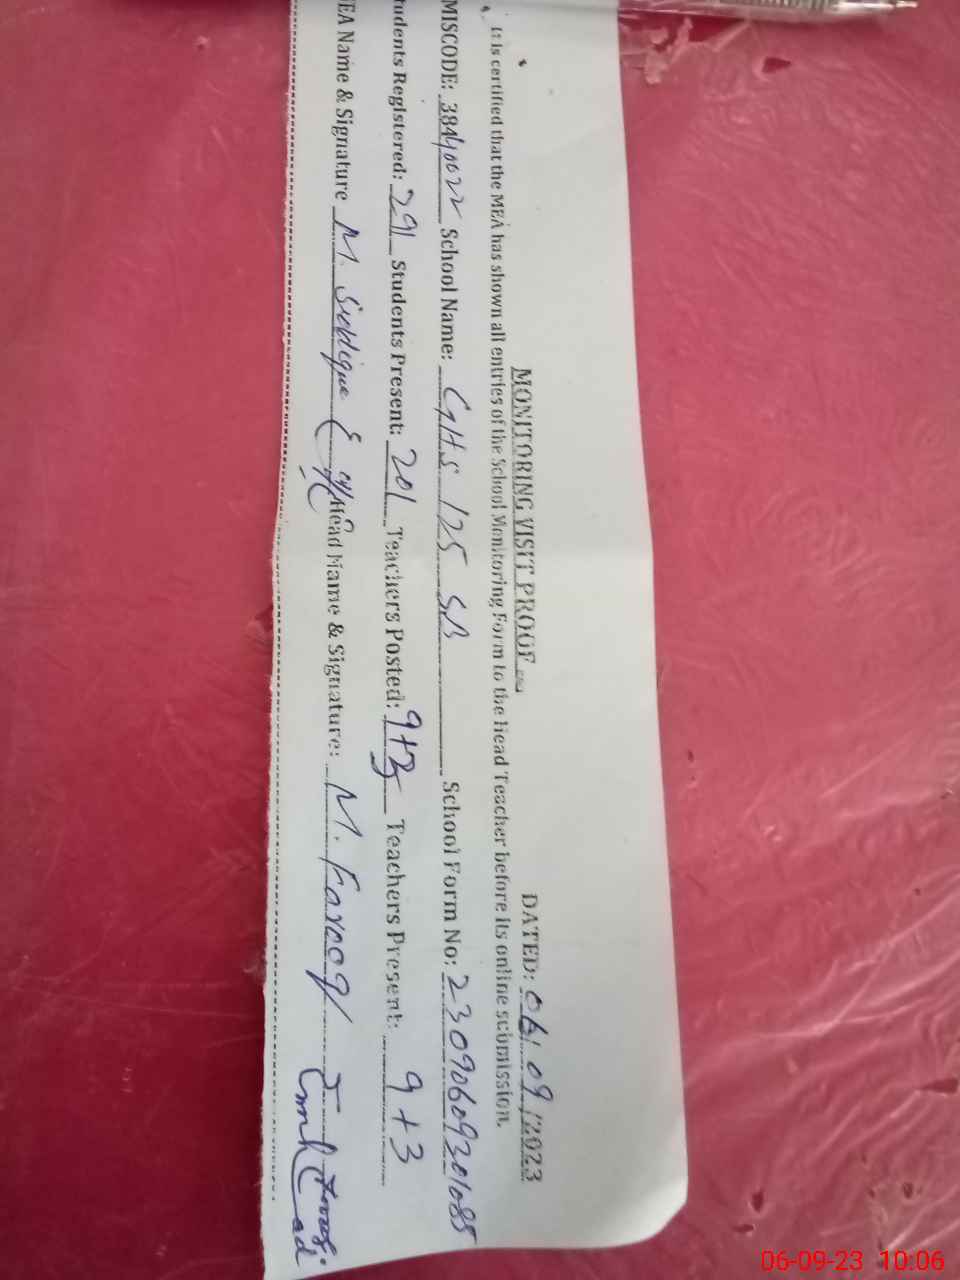 MONITORING VISIT PROOF DATED: 06/09/2023
It is certified that the MEA has shown all entries of the School Monitoring Form to the Head Teacher before its online submission.
MISCODE: 38440022 School Name: GHS 125 SB School Form No: 23090609301085
udents Registered: 291 Students Present: 201 Teachers Posted: 9+3 Teachers Present: 9+3
EA Name & Signature M. Siddique Head Name & Signature: M. Farooq
06-09-23 10:06